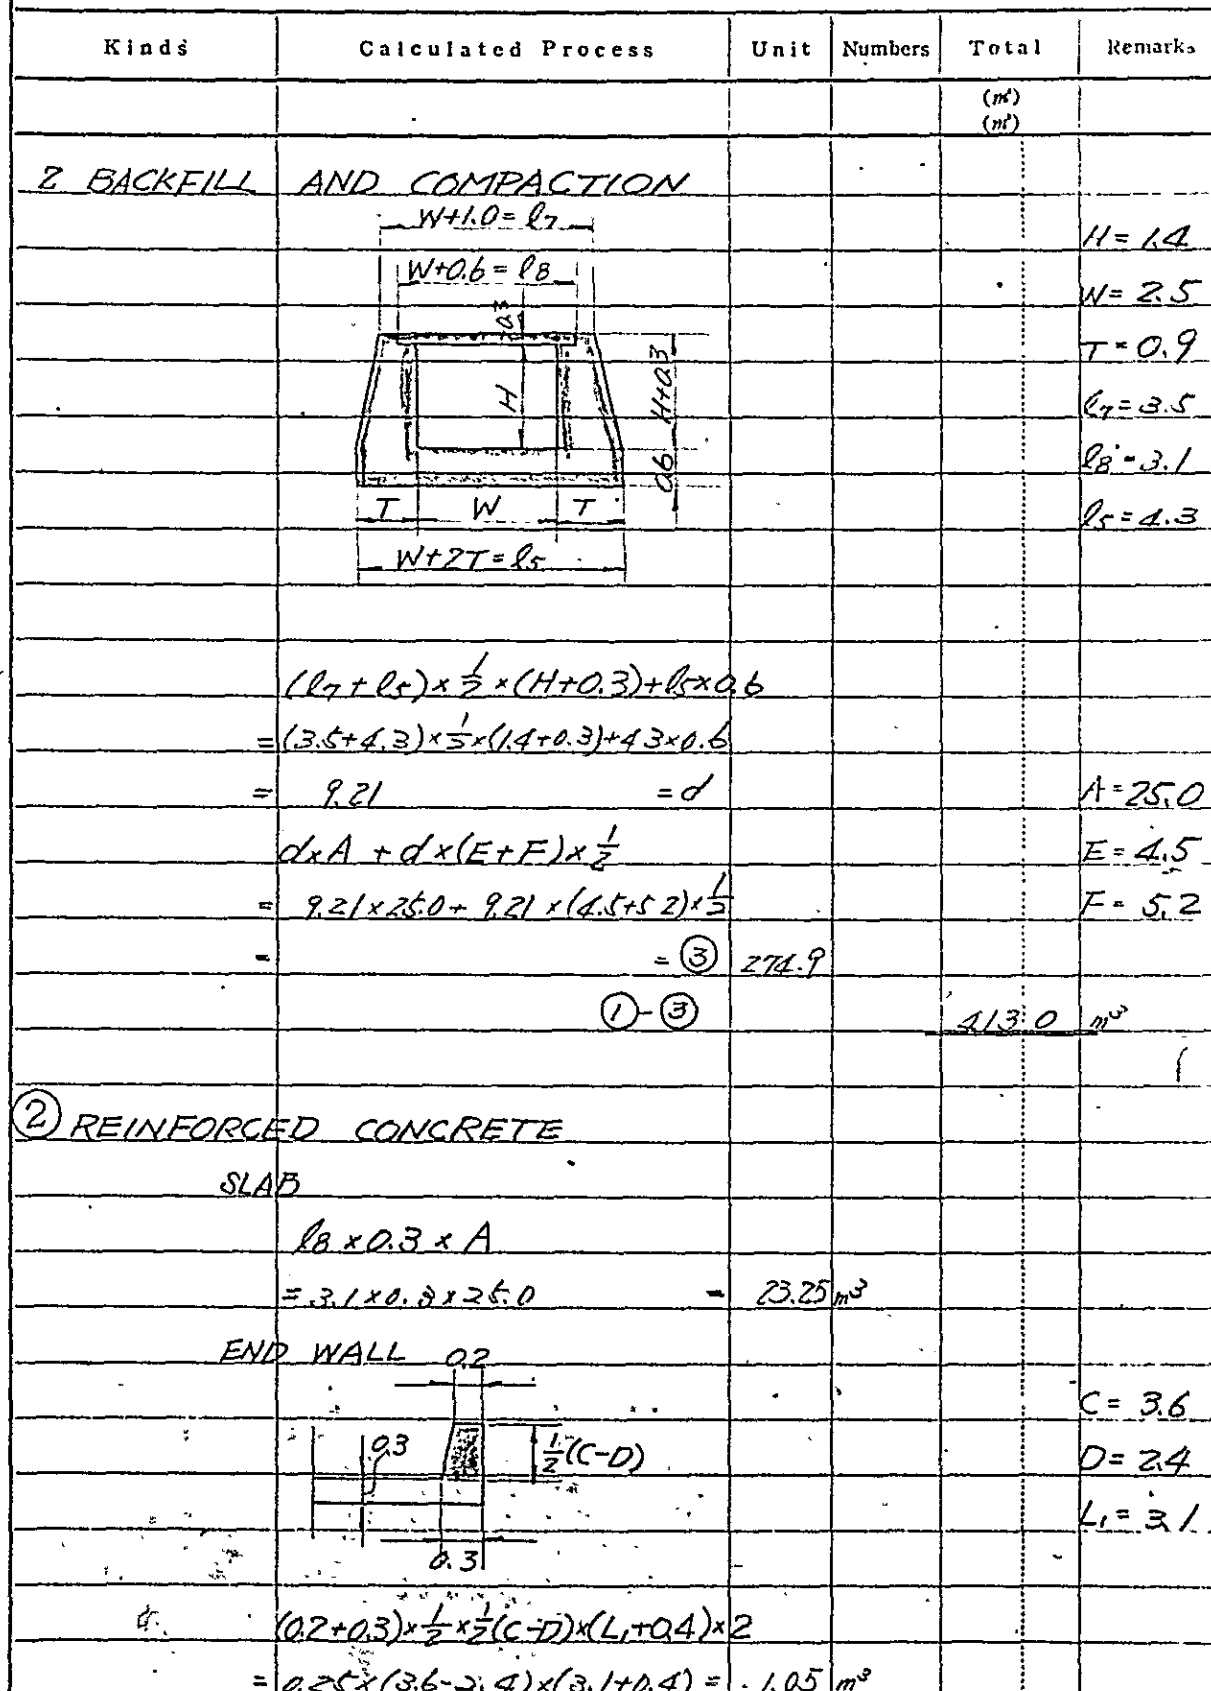 Kinds Calculated Process Unit Numbers Total Remarks
(m³)
(m³)
2 BACKFILL AND COMPACTION
W+1.0=l7
H=1.4
W+0.6=l8
W=2.5
0.3
T=0.9
H
H+0.3
l7=3.5
0.6
l8=3.1
T W T
l5=4.3
W+2T=l5
(l7+l5)×1/2×(H+0.3)+l5×0.6
=(3.5+4.3)×1/2×(1.4+0.3)+4.3×0.6
= 9.21 =d A=25.0
d×A+d×(E+F)×1/2 E=4.5
= 9.21×25.0+9.21×(4.5+5.2)×1/2 F=5.2
= =③ 274.9
①-③ 413.0 m³
② REINFORCED CONCRETE
SLAB
l8×0.3×A
=3.1×0.3×25.0 = 23.25 m³
END WALL 0.2
C=3.6
0.3 1/2(C-D)
D=2.4
L1=3.1
0.3
(0.2+0.3)×1/2×1/2(C-D)×(L1+0.4)×2
=0.25×(3.6-2.4)×(3.1+0.4)= 1.05 m³